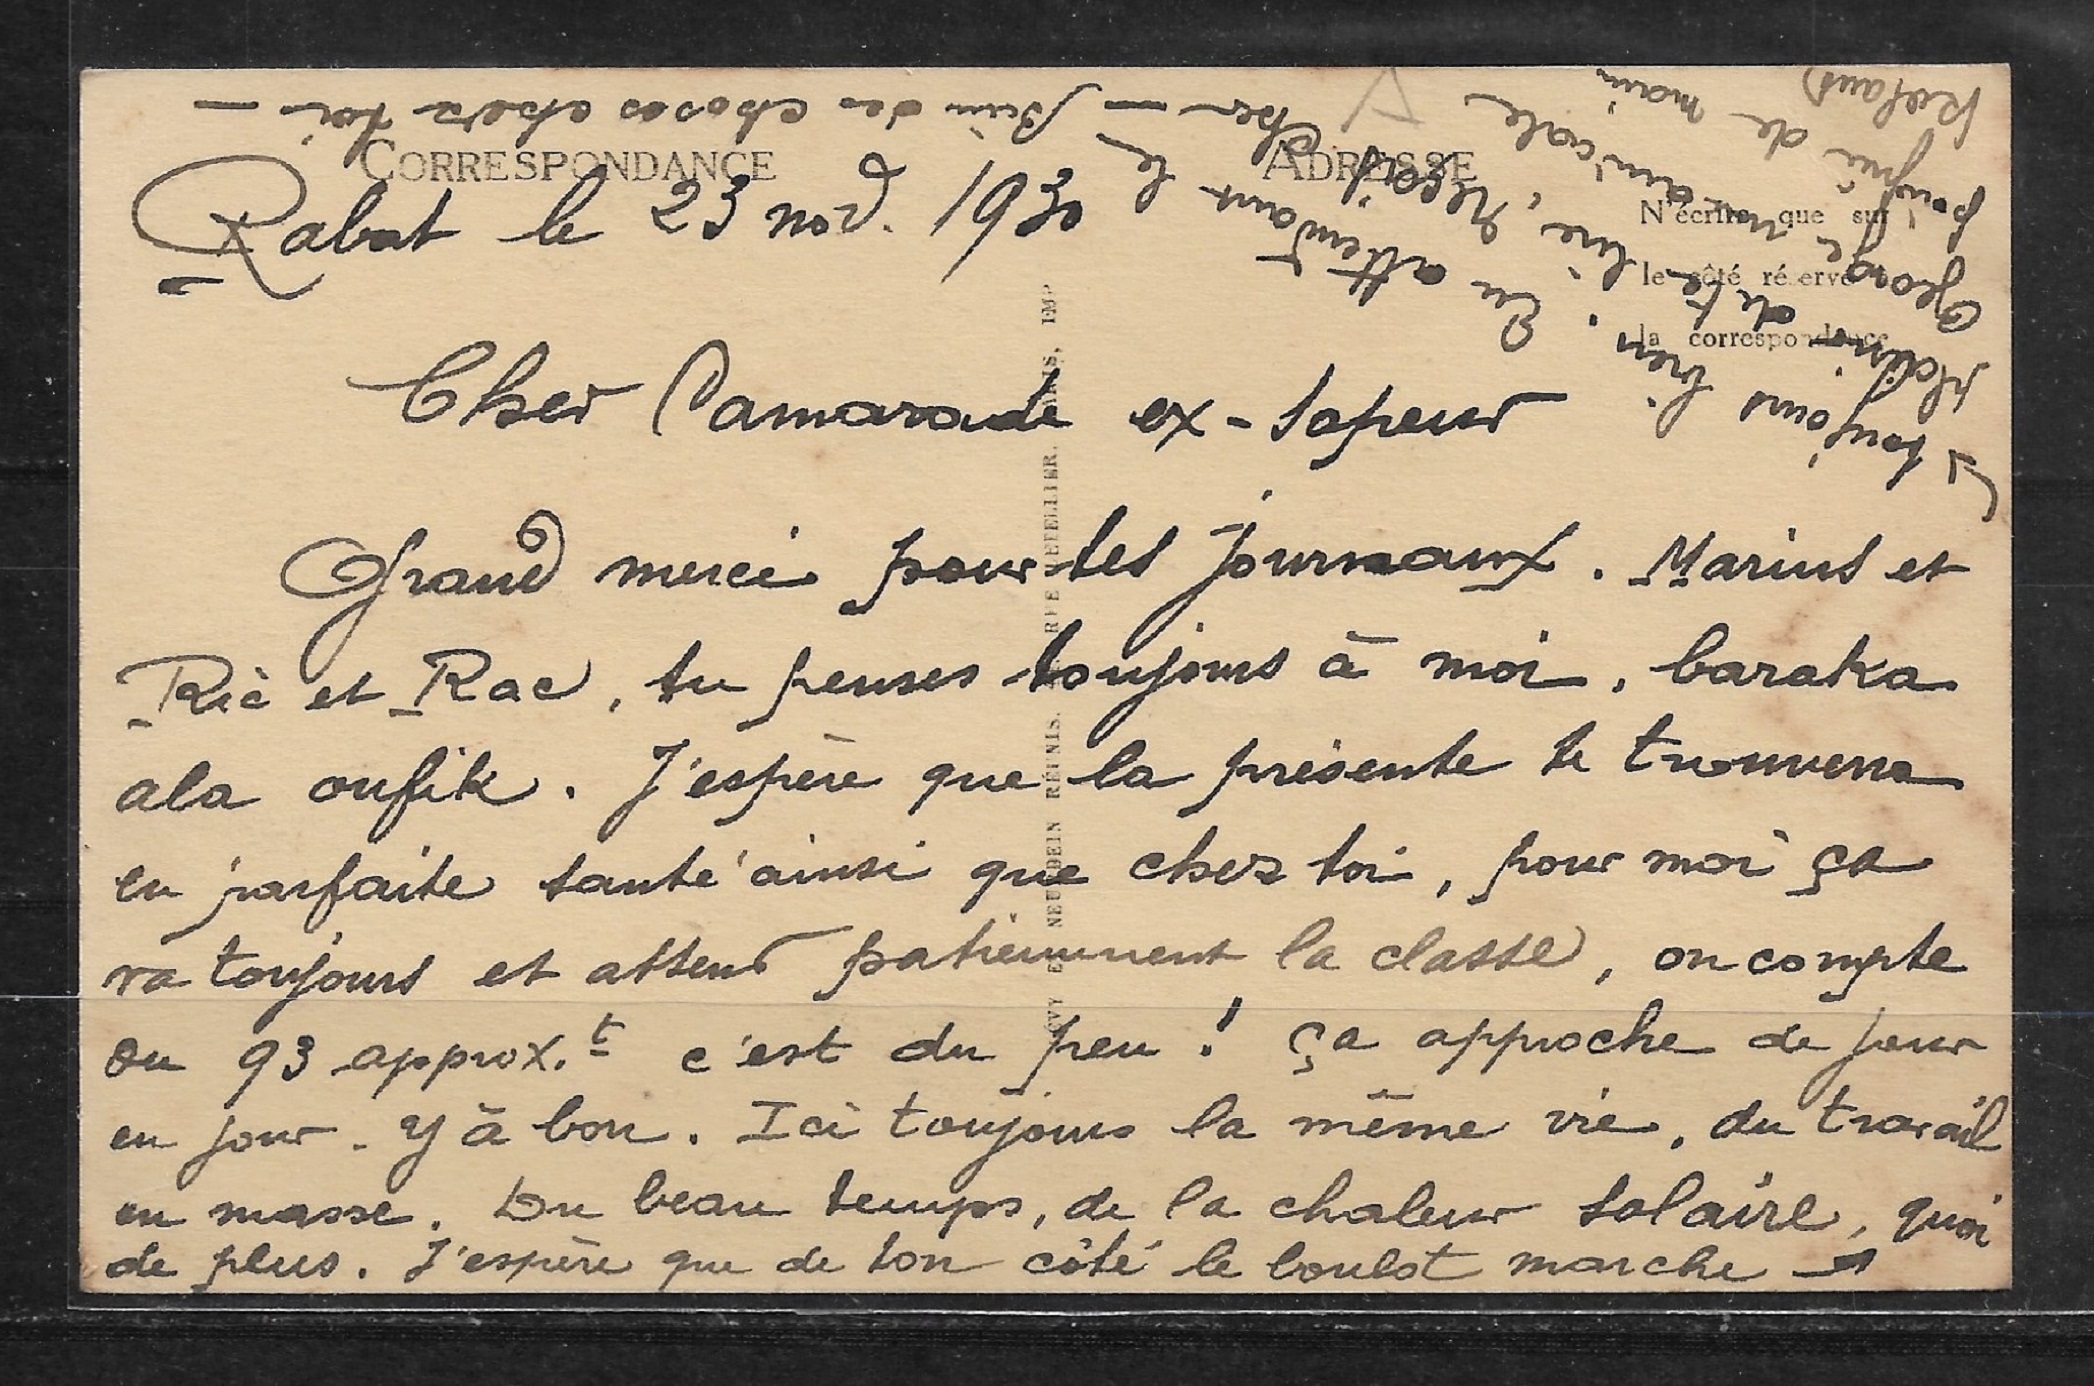 CORRESPONDANCE
ADRESSE
N'écrire que sur
le côté réservé
la correspondance
Rabat le 23 nov. 1930
Cher Camarade ex-sapeur
Grand merci pour tes journaux. Marius et
Ric et Rac, tu penses toujours à moi, baraka
ala oufik. J'espère que la présente te trouvera
en parfaite santé ainsi que chez toi, pour moi ça
va toujours et attend patiemment la classe, on compte
du 93 approx.t c'est du peu! ça approche de jour
en jour. Y à bon. Ici toujours la même vie, du travail
en masse. Du beau temps, de la chaleur solaire, quoi
de plus. J'espère que de ton côté le boulot marche →
toujours bien. En attendant le
plaisir de te lire, reçois Cher
George une amicale
poignée de main
Roland
— Bien des choses chez toi —
LEVY ET NEURDEIN RÉUNIS. RUE LETELLIER. PARIS. IMP
A